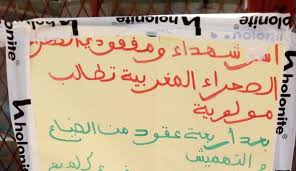 holonite®
holonite®
أسر شهداء ومفقودي
الصحراء المغربية تطالب
مولوية
بعد أربعة عقود من الضياع
و التهميش
holonite
holonite®